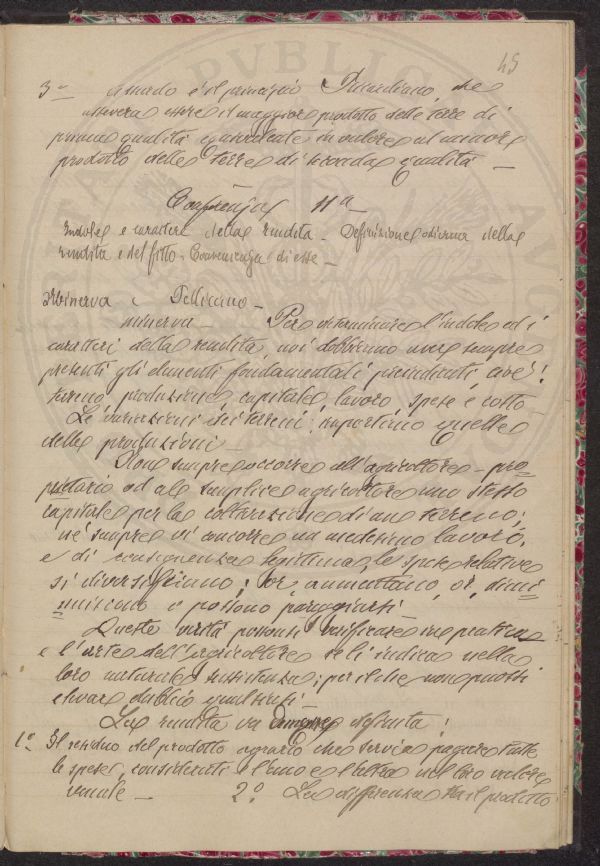 45
3º Assurdo è il principio Ricardiano, che
assevera essere il maggiore prodotto delle terre di
prima qualità equivalente in valore al minore
prodotto delle terre di seconda qualità —
Conferenza 11ª
Indole e carattere della rendita. Definizione odierna della
rendita e del fitto. Convenienza di esse —
Minerva e Pellicano —
Minerva — Per determinare l'indole ed i
caratteri della rendita, noi dobbiamo avere sempre
presenti gli elementi fondamentali precedenti, cioè:
terreno, produzione, capitale, lavoro, spese e costo —
Le variazioni dei terreni, importano quelle
delle produzioni —
Non sempre occorre all'agricoltore – pro=
prietario od al semplice agricoltore uno stesso
capitale per la coltivazione di un terreno;
né sempre vi concorre un medesimo lavoro,
e di conseguenza legittima, le spese relative
si diversificano; or, aumentano, or, dimi=
nuiscono e possono pareggiarsi
Queste verità possonsi verificare in pratica
e l'arte dell'agricoltore le indica nella
loro naturale sussistenza; per il che non puossi
elevare dubbio qualsiasi
La rendita va definita:
1º Il residuo del prodotto agrario che serve a pagare tutte
le spese, considerati e l'uno e l'altra nel loro valore
venale — 2º La differenza tra il prodotto